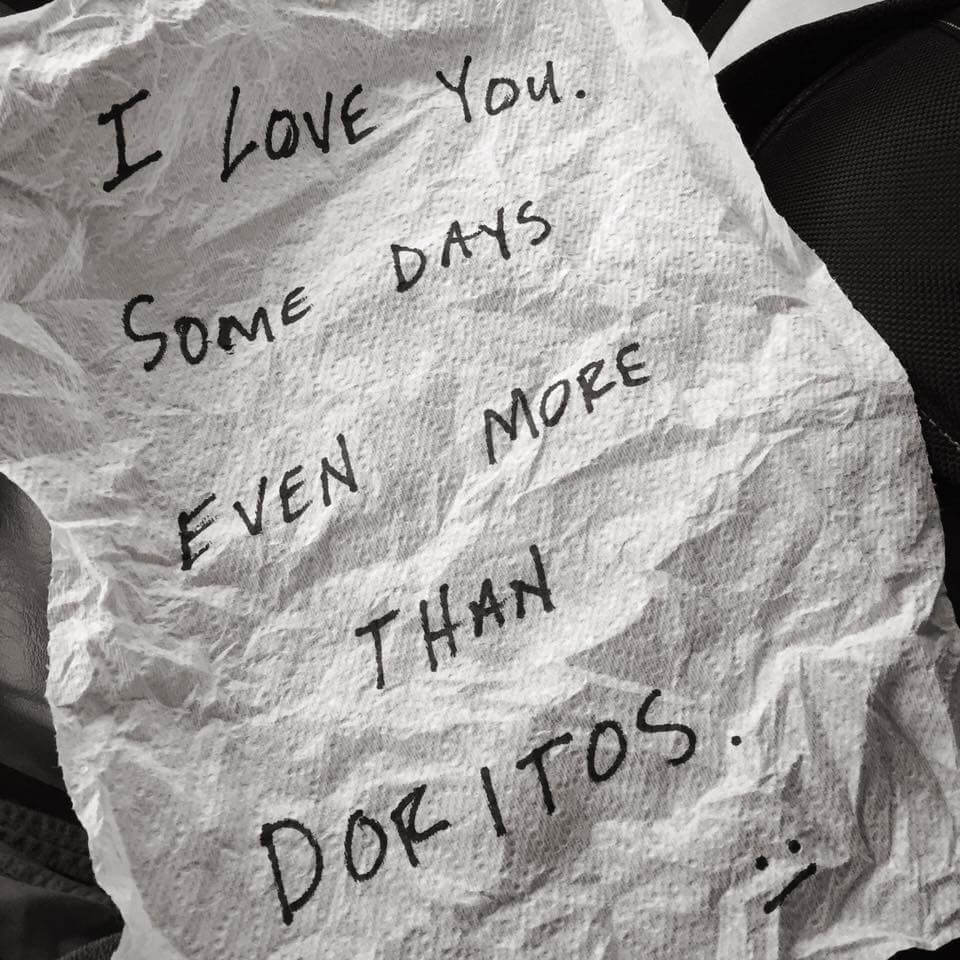 I LOVE YOU.
SOME DAYS
EVEN MORE
THAN
DORITOS.